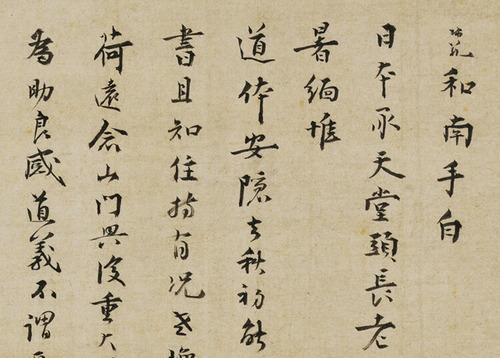 師範和南手白
日本承天堂頭長老
暑緬惟
道体安隱去秋初能
書且知住持有況老
荷遠念山門興復重大
為助良感道義不謂